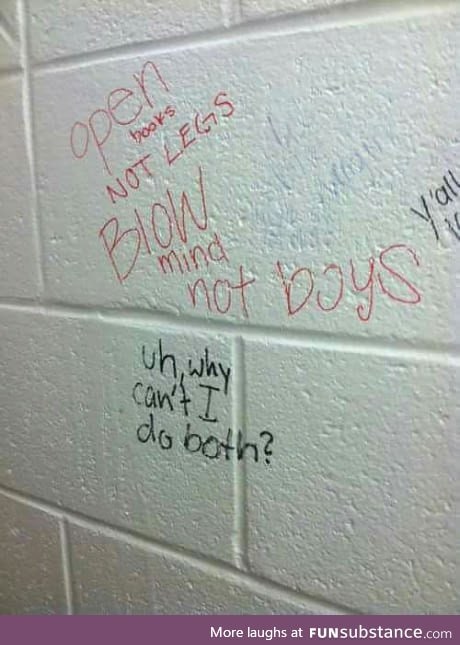 open
books
NOT LEGS
BlOW
mind
not boys
y'all
uh, why
can't I
do both?
More laughs at FUNsubstance.com